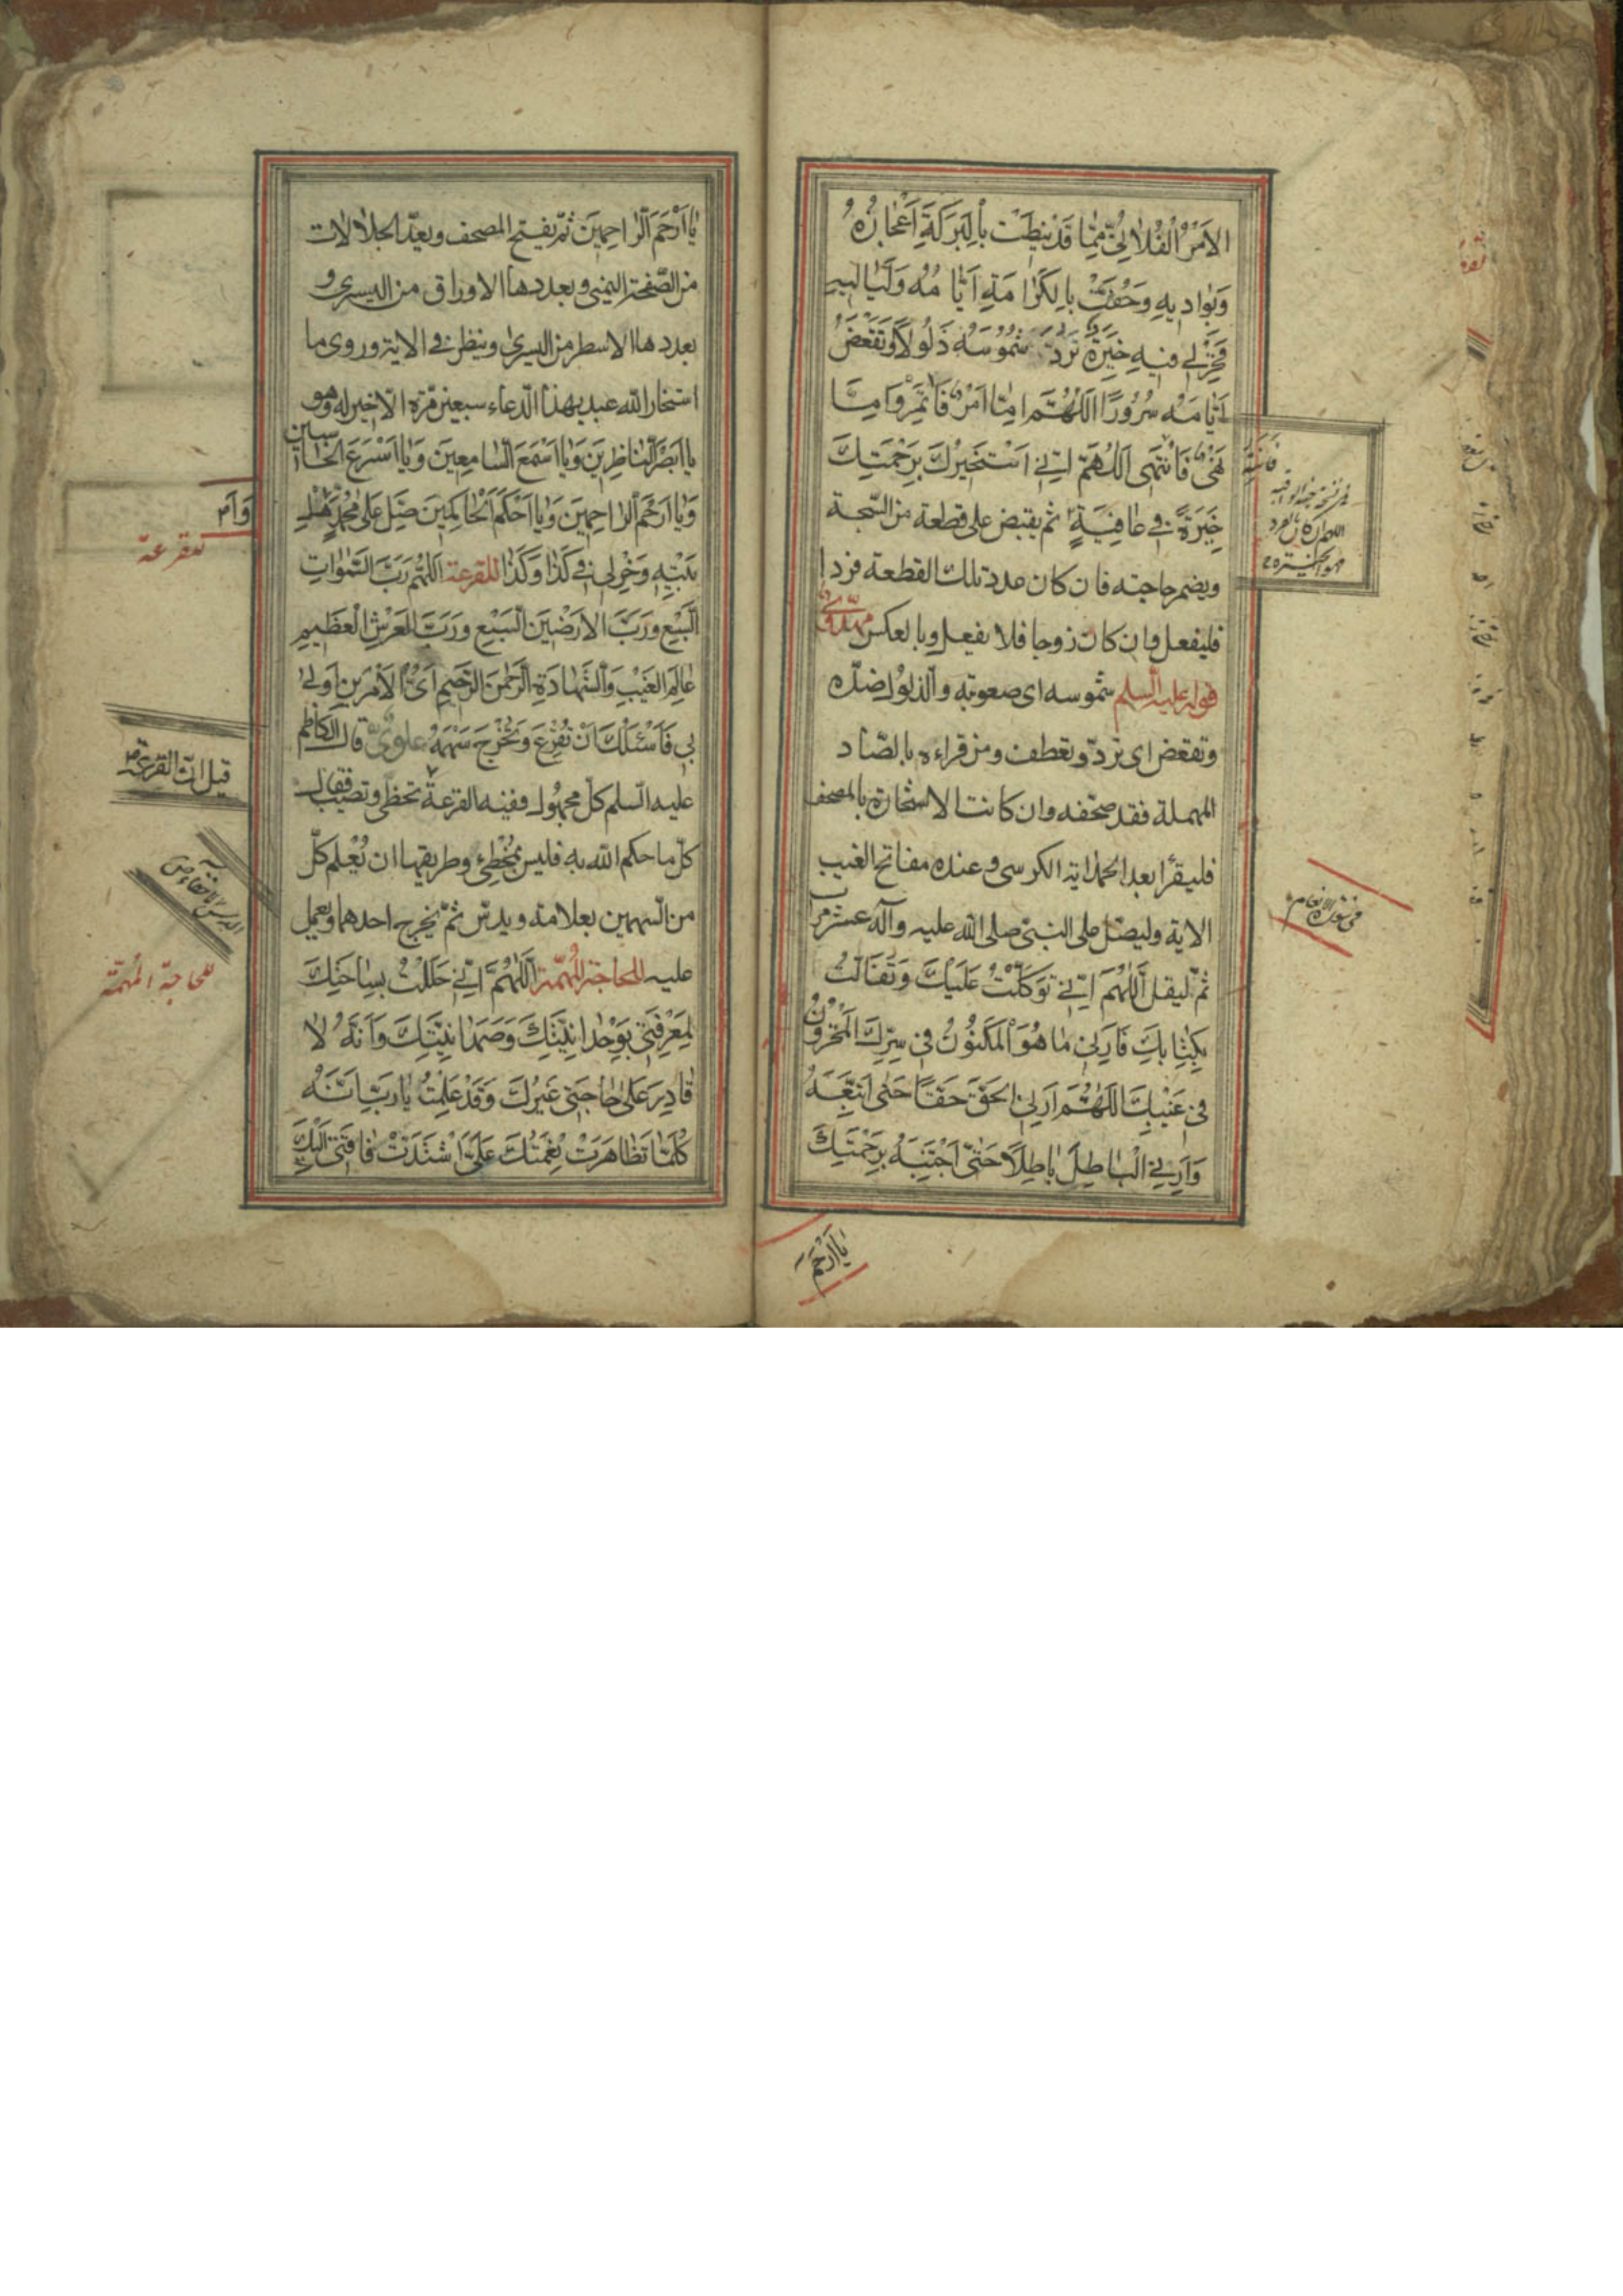 الاَمْرُ الْفُلاٰنِيُّ مِمّٰا قَدْ نِيطَتْ بِالْبَرَكَةِ اَعْجٰازُهُ
وَبَوٰادِيهِ وَحُفَّتْ بِالْكَرٰامَةِ اَيّٰامُهُ وَلَيٰالِيهِ
فَخِرْ لِي فِيهِ خِيَرَةً تَرُدُّ شَمُوسَهُ ذَلُولاً وَتَقْعَضُ
اَيّٰامَهُ سُرُورًا اَللّٰهُمَّ اِمّٰا اَمْرٌ فَاٰتَمِرُ وَاِمّٰا
نَهْيٌ فَاَنْتَهِي اَللّٰهُمَّ اِنِّي اَسْتَخِيرُكَ بِرَحْمَتِكَ
خِيَرَةً فِي عٰافِيَةٍ ثم يقبض على قطعة من السّبحة
ويضمر حاجته فان كان عدد تلك القطعة فردا
فليفعل وان كان زوجا فلا يفعل وبالعكس
قوله عليه السلم شموسه اى صعوبته والذلول ضدّه
وتقعض اى تردّ وتعطف ومن قراءه بالصّاد
المهملة فقد صحّفه وان كانت الاستخارة بالمصحف
فليقرأ بعد الحمد اية الكرسى وعنده مفاتح الغيب
الاية وليصلّ على النبىّ صلى الله عليه وآله عشر مرات
ثمّ ليقل اَللّٰهُمَّ اِنِّي تَوَكَّلْتُ عَلَيْكَ وَتَفَأَّلْتُ
بِكِتٰابِكَ فَاَرِنِي مٰا هُوَ الْمَكْنُونُ فِي سِرِّكَ الْمَخْزُونُ
فِي غَيْبِكَ اَللّٰهُمَّ اَرِنِي الْحَقَّ حَقًّا حَتّٰى اَتَّبِعَهُ
وَاَرِنِي الْبٰاطِلَ بٰاطِلاً حَتّٰى اَجْتَنِبَهُ بِرَحْمَتِكَ
يٰا اَرْحَمَ
فى سورة الانعام
يٰا اَرْحَمَ الرّٰاحِمِينَ ثمّ يفتح المصحف ويعدّ الجلالات
من الصّفحة اليمنى وبعددها الاوراق من اليسرى و
بعددها الاسطر من اليسرى وينظر في الاية وروى ما
استخار الله عبد بهذا الدّعاء سبعين مرّة الّا خير له وهو
يٰا اَبْصَرَ النّٰاظِرِينَ وَيٰا اَسْمَعَ السّٰامِعِينَ وَيٰا اَسْرَعَ الْحٰاسبين
وَيٰا اَرْحَمَ الرّٰاحِمِينَ وَيٰا اَحْكَمَ الْحٰاكِمِينَ صَلِّ عَلىٰ مُحَمَّدٍ وَاَهْلِ
بَيْتِهِ وَخِرْ لِي فِي كَذٰا وَكَذٰا للقرعة اَللّٰهُمَّ رَبَّ السَّمٰوٰاتِ
السَّبْعِ وَرَبَّ الاَرَضِينَ السَّبْعِ وَرَبَّ الْعَرْشِ الْعَظِيمِ
عٰالِمَ الْغَيْبِ وَالشَّهٰادَةِ الرَّحْمٰنَ الرَّحِيمَ اَىُّ الاَمْرَيْنِ اَوْلىٰ
بِي فَاَسْئَلُكَ اَنْ تُقْرِعَ وَتُخْرِجَ سَهْمَهُ قال الكاظم
عليه السّلم كلّ مجهول ففيه القرعة تخطى وتصيب فقال
كلّ ما حكم الله به فليس بمُخْطِئ وطريقها ان يُعْلَم كلّ
من السّهمين بعلامة ويدسّ ثمّ يخرج احدهما ويعمل
عليه للحاجة المُهمّة اَللّٰهُمَّ اِنِّي حَلَلْتُ بِسٰاحَتِكَ
لِمَعْرِفَتِي بِوَحْدٰانِيَّتِكَ وَصَمَدٰانِيَّتِكَ وَاَنَّهُ لاٰ
قٰادِرَ عَلىٰ حٰاجَتِي غَيْرُكَ وَقَدْ عَلِمْتُ يٰا رَبِّ اَنَّهُ
كُلَّمٰا تَظٰاهَرَتْ نِعْمَتُكَ عَلَيَّ اشْتَدَّتْ فٰاقَتِي اِلَيْكَ
للقرعة
قيل ان القرعة
للحاجة المُهمّة